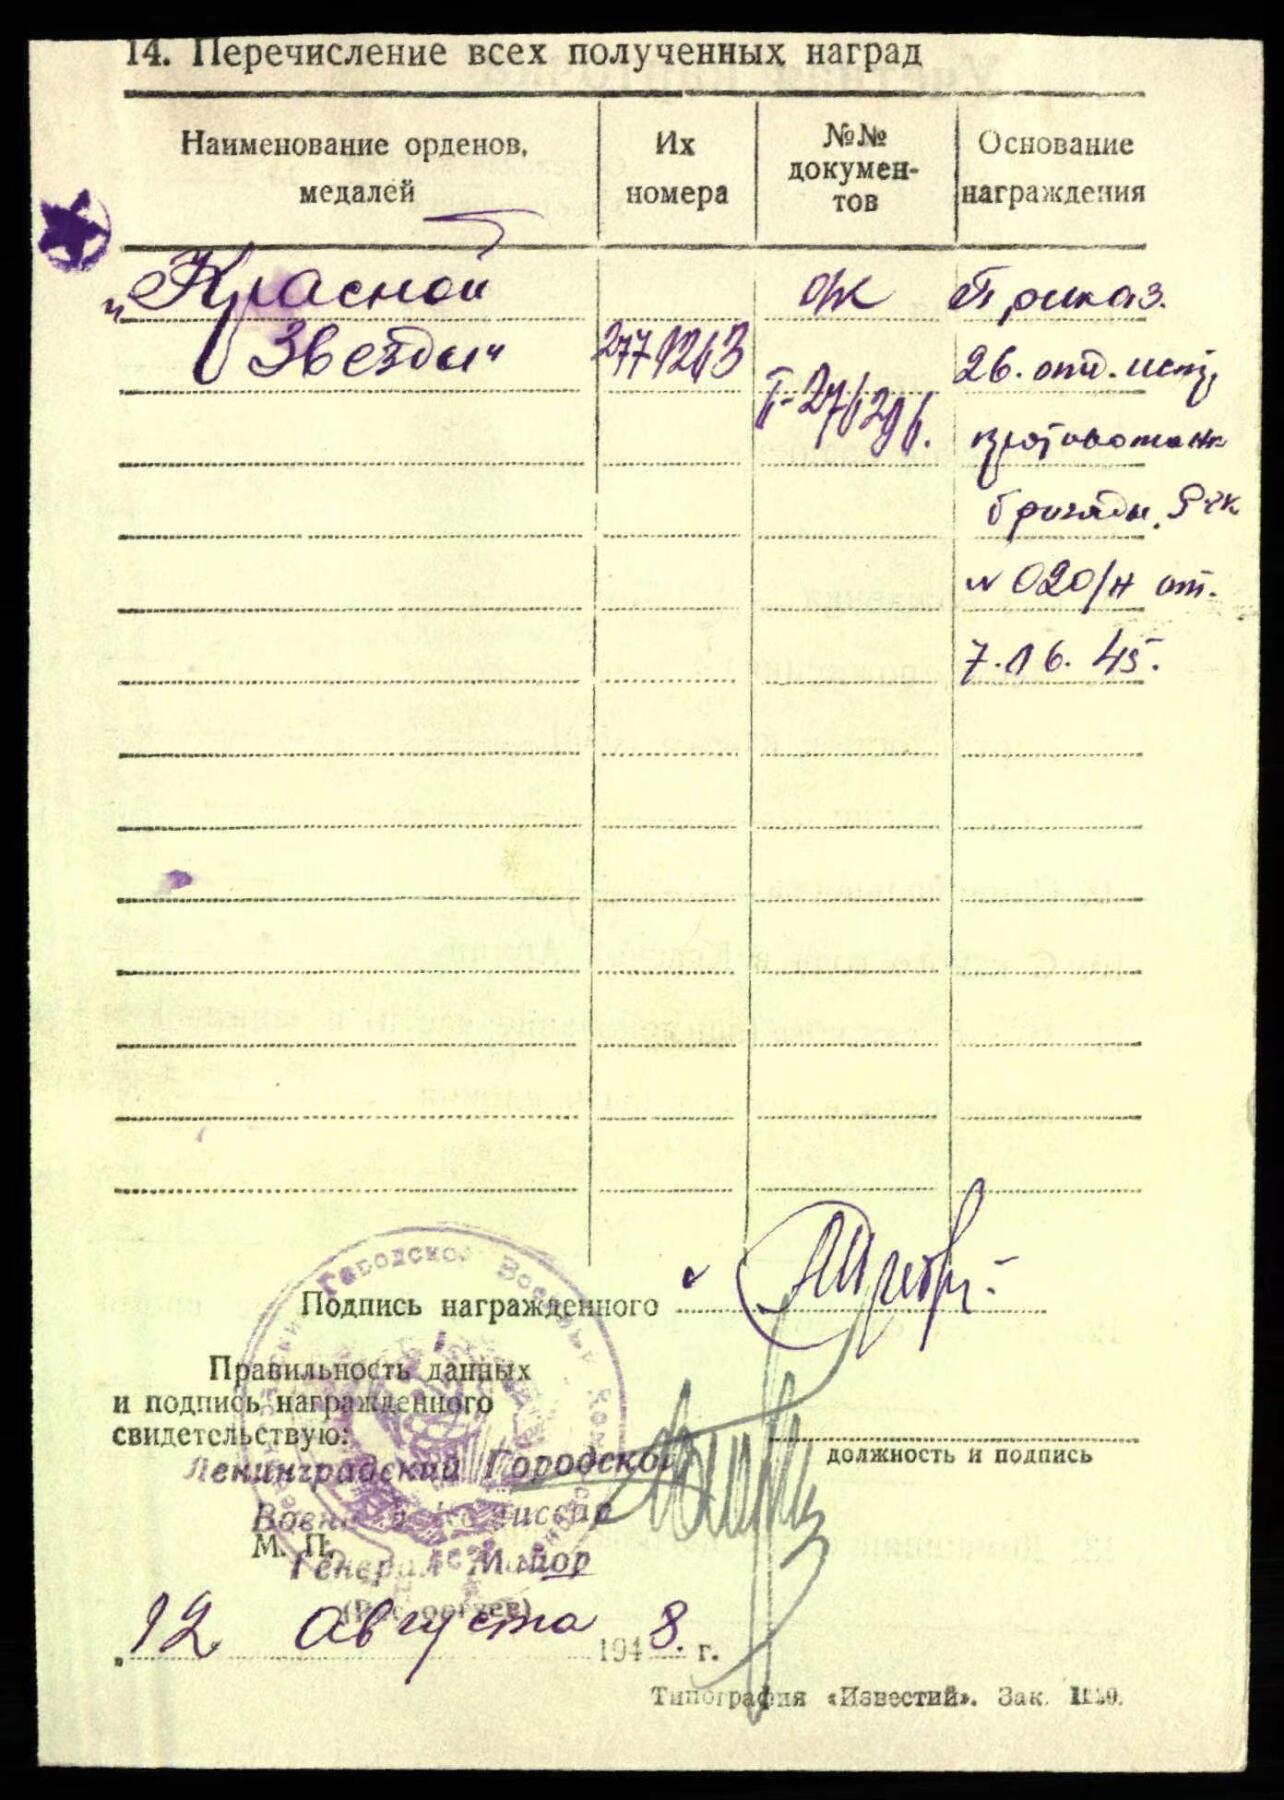 14. Перечисление всех полученных наград
Наименование орденов, медалей
Их номера
№№ документов
Основание награждения
„Красной
Звезды“
о/к
Приказ.
26. отд. истр.
противотанк
бригады. РГК
№ 020/н от.
7.
45.
Подпись награжденного
Правильность данных
и подпись награжденного
свидетельствую:
должность и подпись
Ленинградский Городской
М. П.
Генерал Майор
12 Августа 1948. г.
Типография «Известий». Зак.